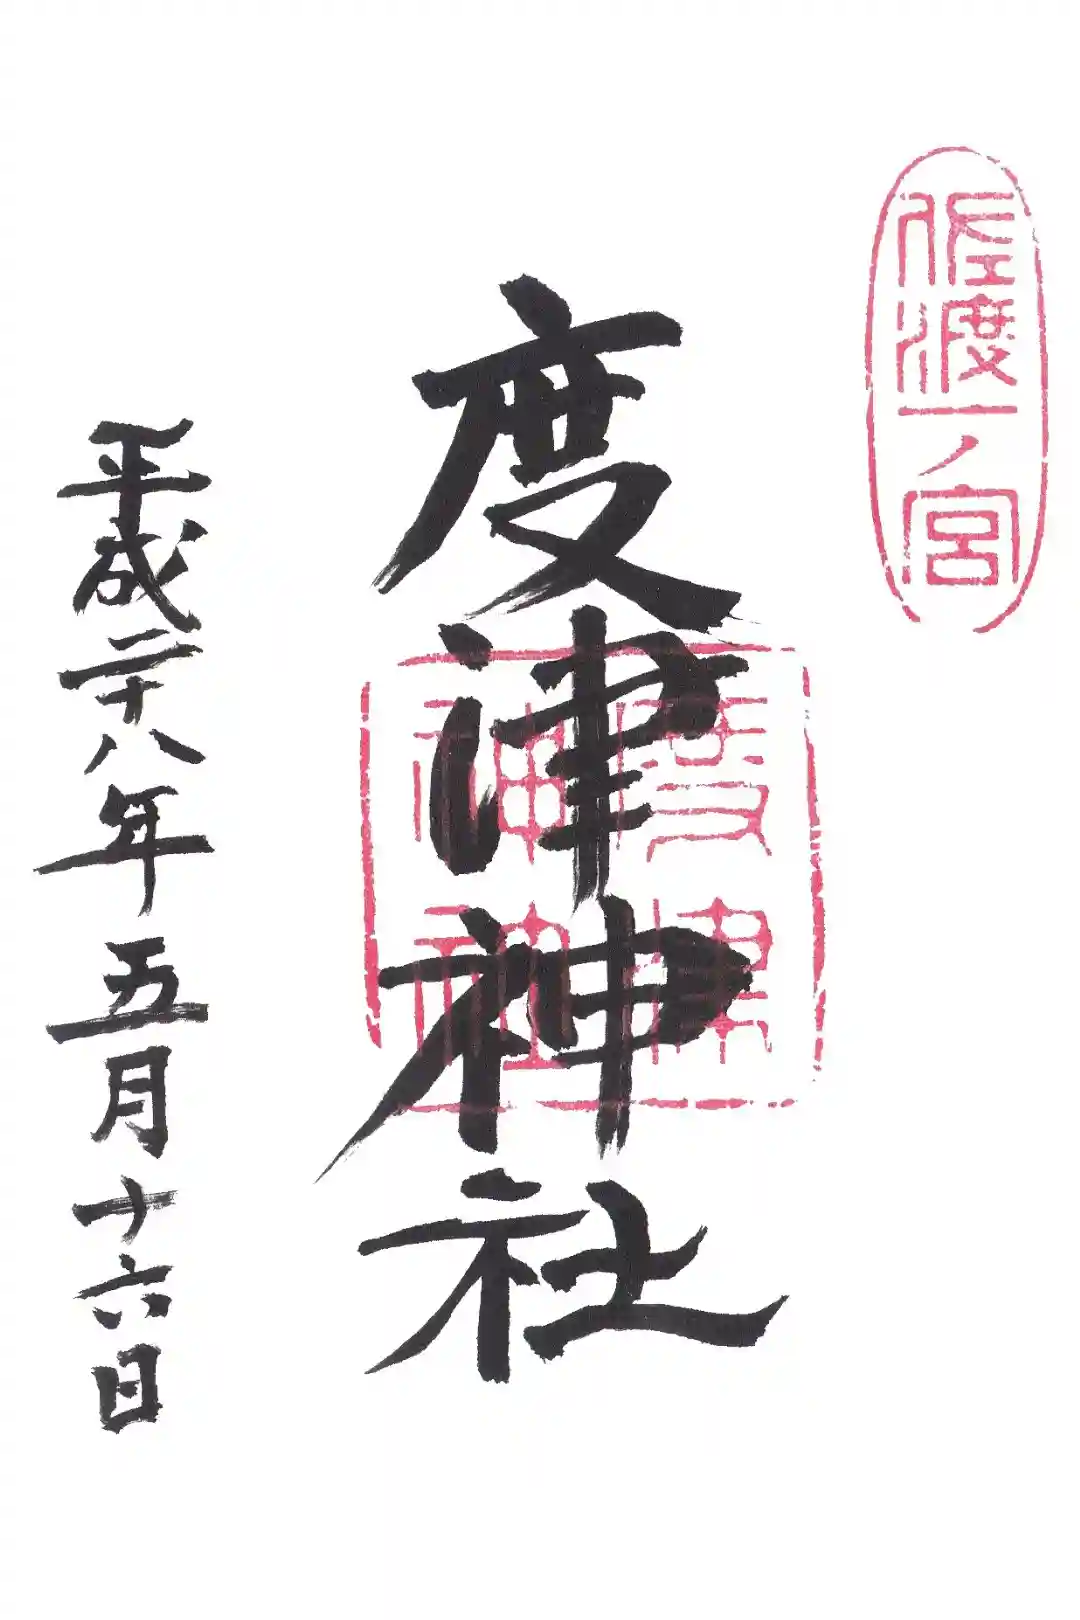 佐渡一ノ宮
度津神社
度津
神社
平成二十八年五月十六日